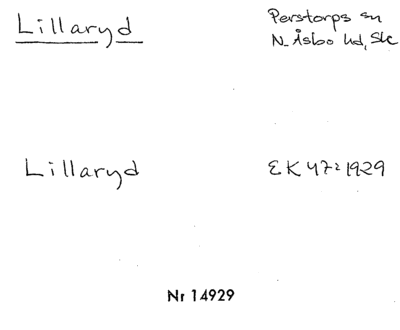 Lillaryd
Perstorps sn
N. Åsbo hd, Sk
Lillaryd
EK 472 1929
Nr 14929